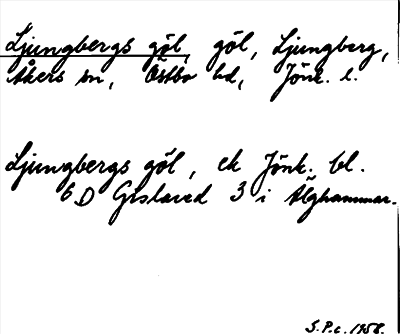 Ljungbergs göl, göl, Ljungberg,
Åkers sn, Östbo hd, Jönk. l.
Ljungbergs göl, ek Jönk. bl.
6D Gislaved 3 i Älghammar.
S.P.c. 1958.